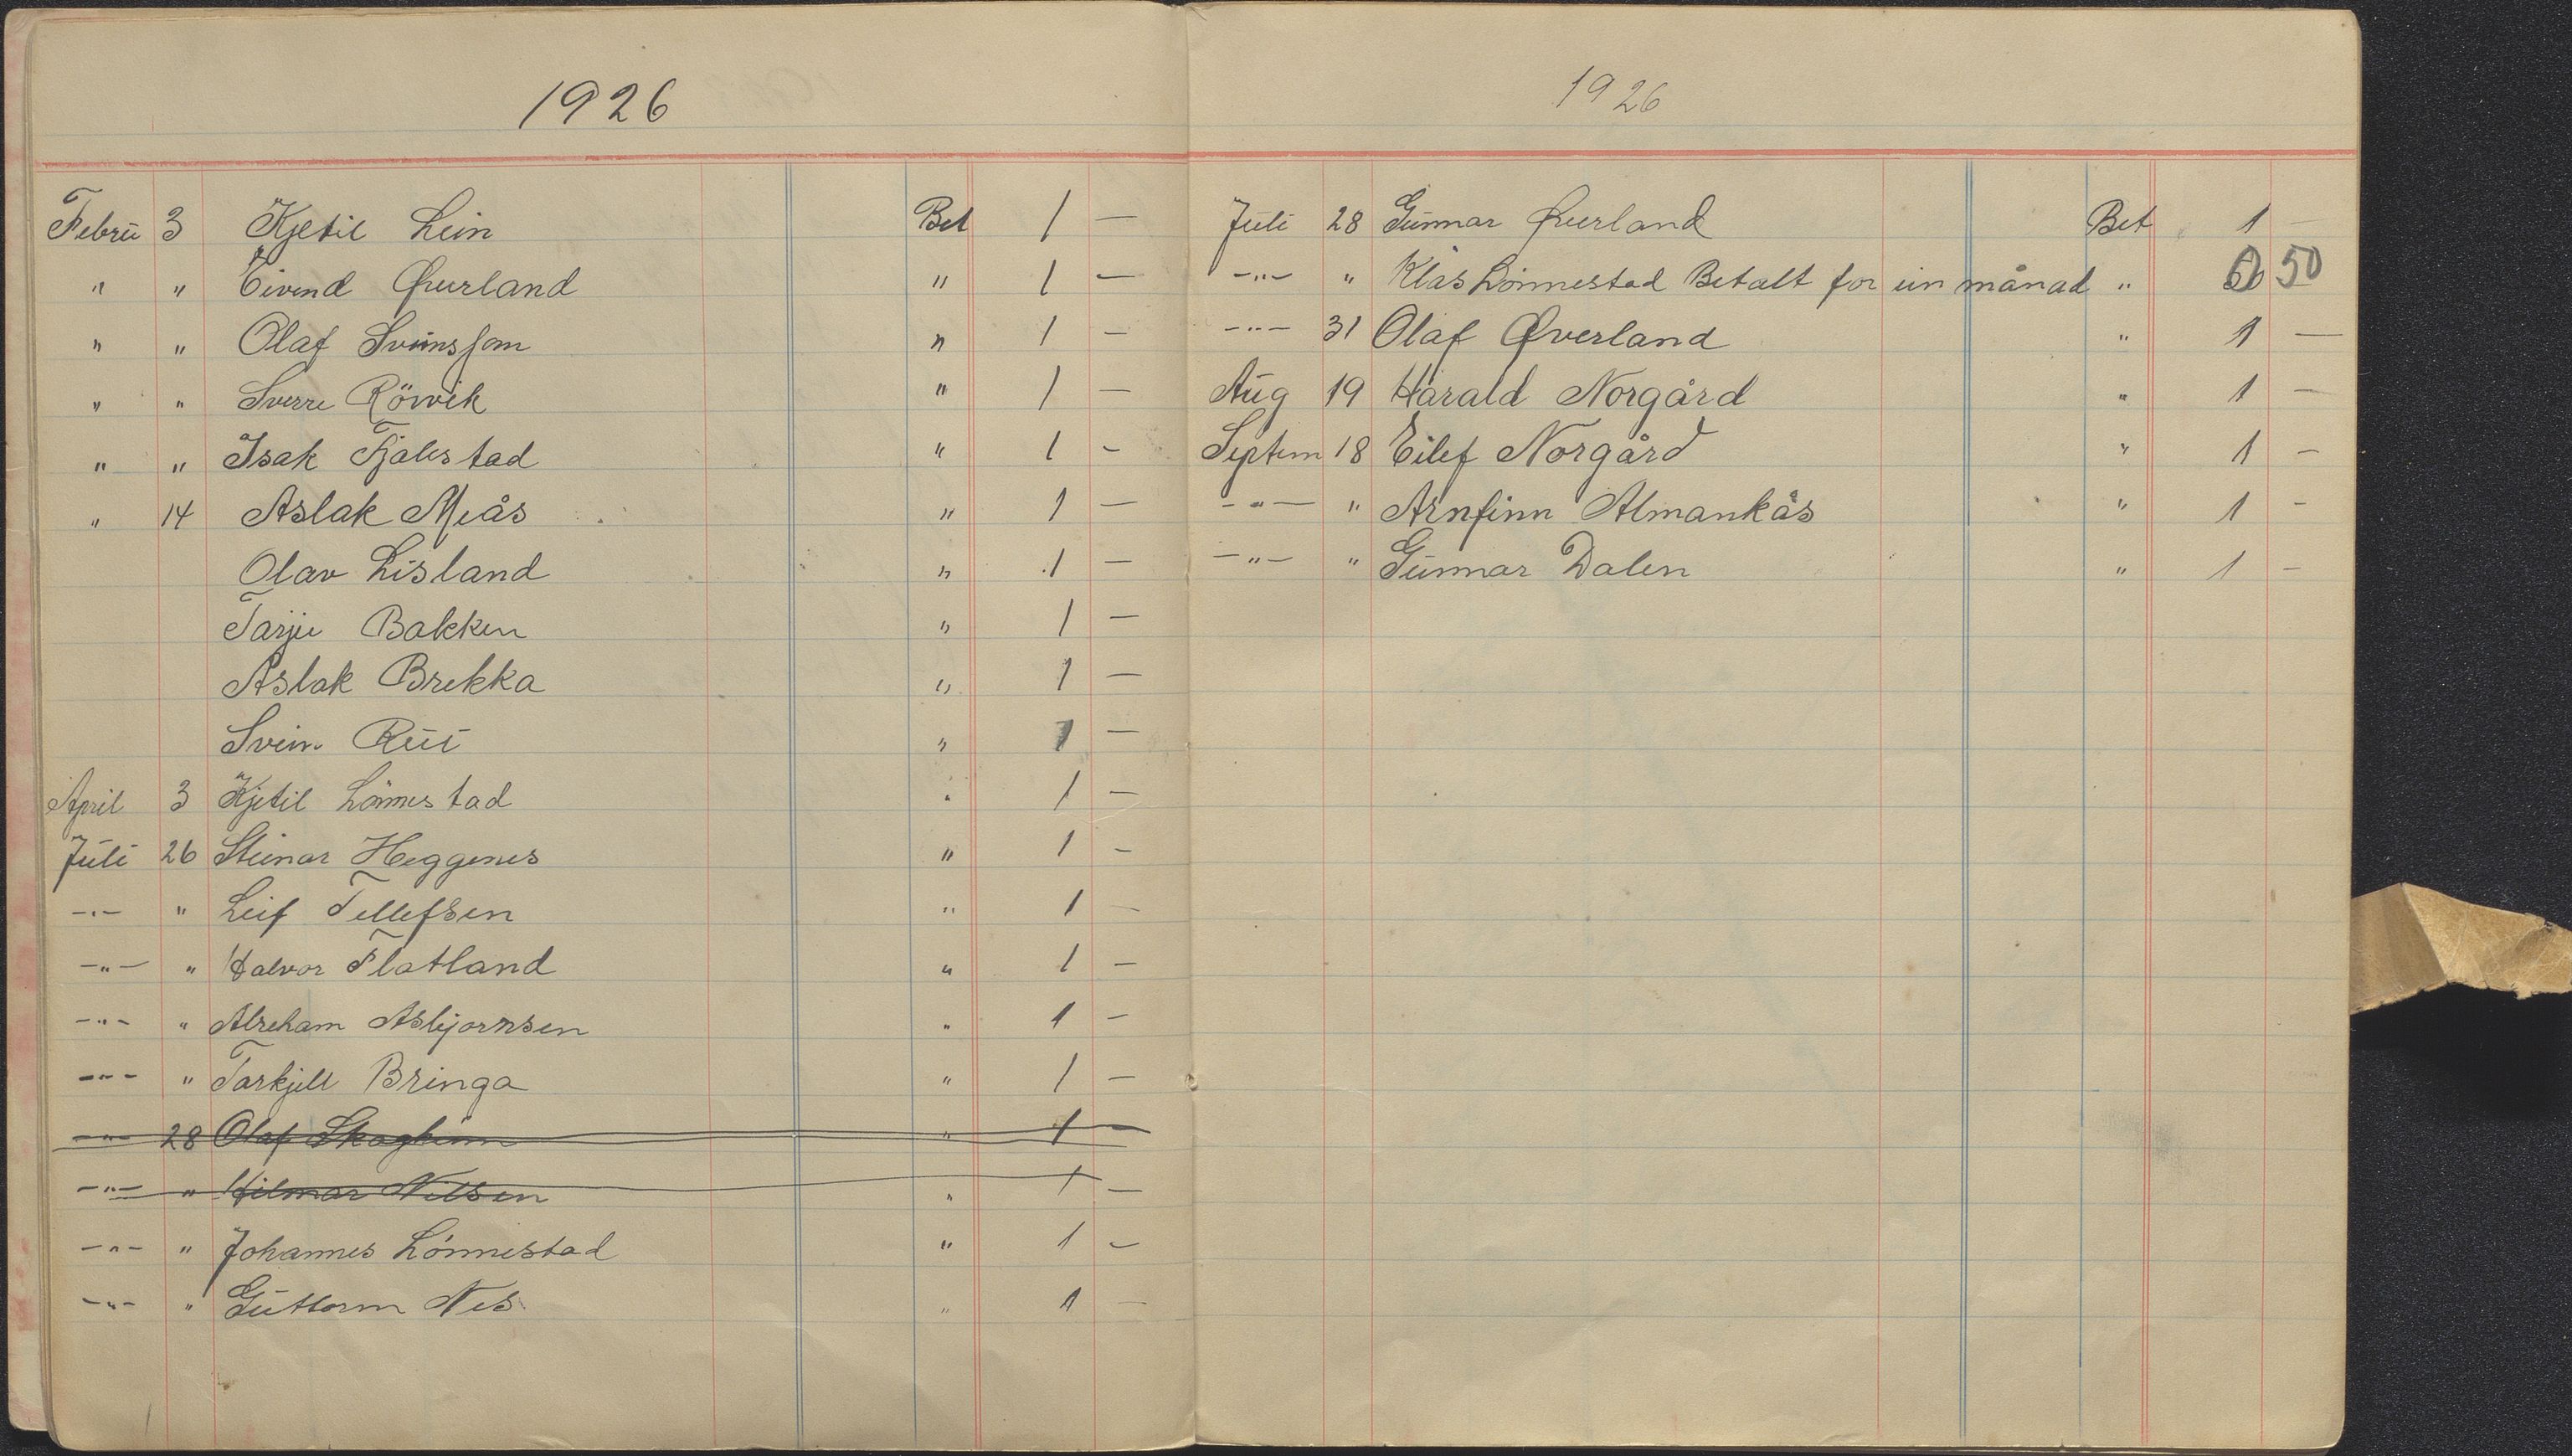 1926
Febru 3 Kjetil Lein Bet 1 —
" " Eivind Øverland " 1 —
" " Olaf Sveinsson " 1 —
" " Sverre Rörvik " 1 —
" " Isak Fjalestad " 1 -
" 14 Aslak Meås " 1 —
Olav Lisland " 1 —
Tarjei Bakken " 1 —
Aslak Brekka " 1 —
Svein Rui " 1 —
April 3 Kjetil Lönnestad " 1 —
Juli 26 Steinar Heggenes " 1 -
-"- " Leif Tellefsen " 1 —
-"- " Halvor Flatland " 1 —
-"- " Abreham Asbjornsen " 1 -
-"- " Tarkjell Bringa " 1 —
-"- 28 Olaf " 1 —
-"- " Hilmar Nilsen " 1 —
-"- " Johannes Lónnestad " 1 -
-"- " Guttorm Nes " 1 —
1926
Juli 28 Gunnar Øverland Bet 1 —
-"- " Klas Lönnestad Betalt for ein månad " 50
-"- 31 Olaf Øverland " 1 —
Aug 19 Harald Norgård " 1 -
Septem 18 Eilef Norgård " 1 -
-"- " Arnfinn Almankås " 1 -
-"- " Gunnar Dalen " 1 -